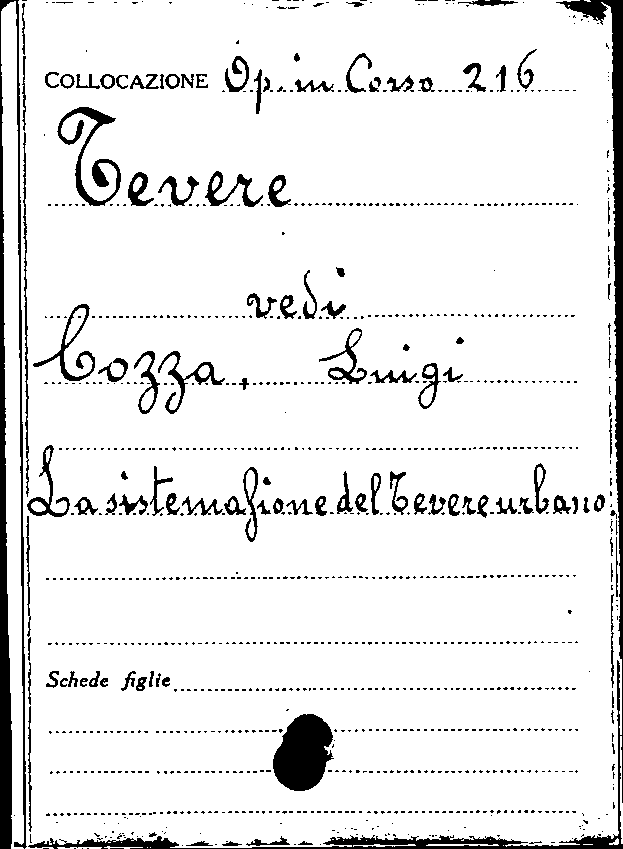 COLLOCAZIONE Op. in Corso 216
Tevere
vedi
Cozza, Luigi
La sistemazione del Tevere urbano.
Schede figlie